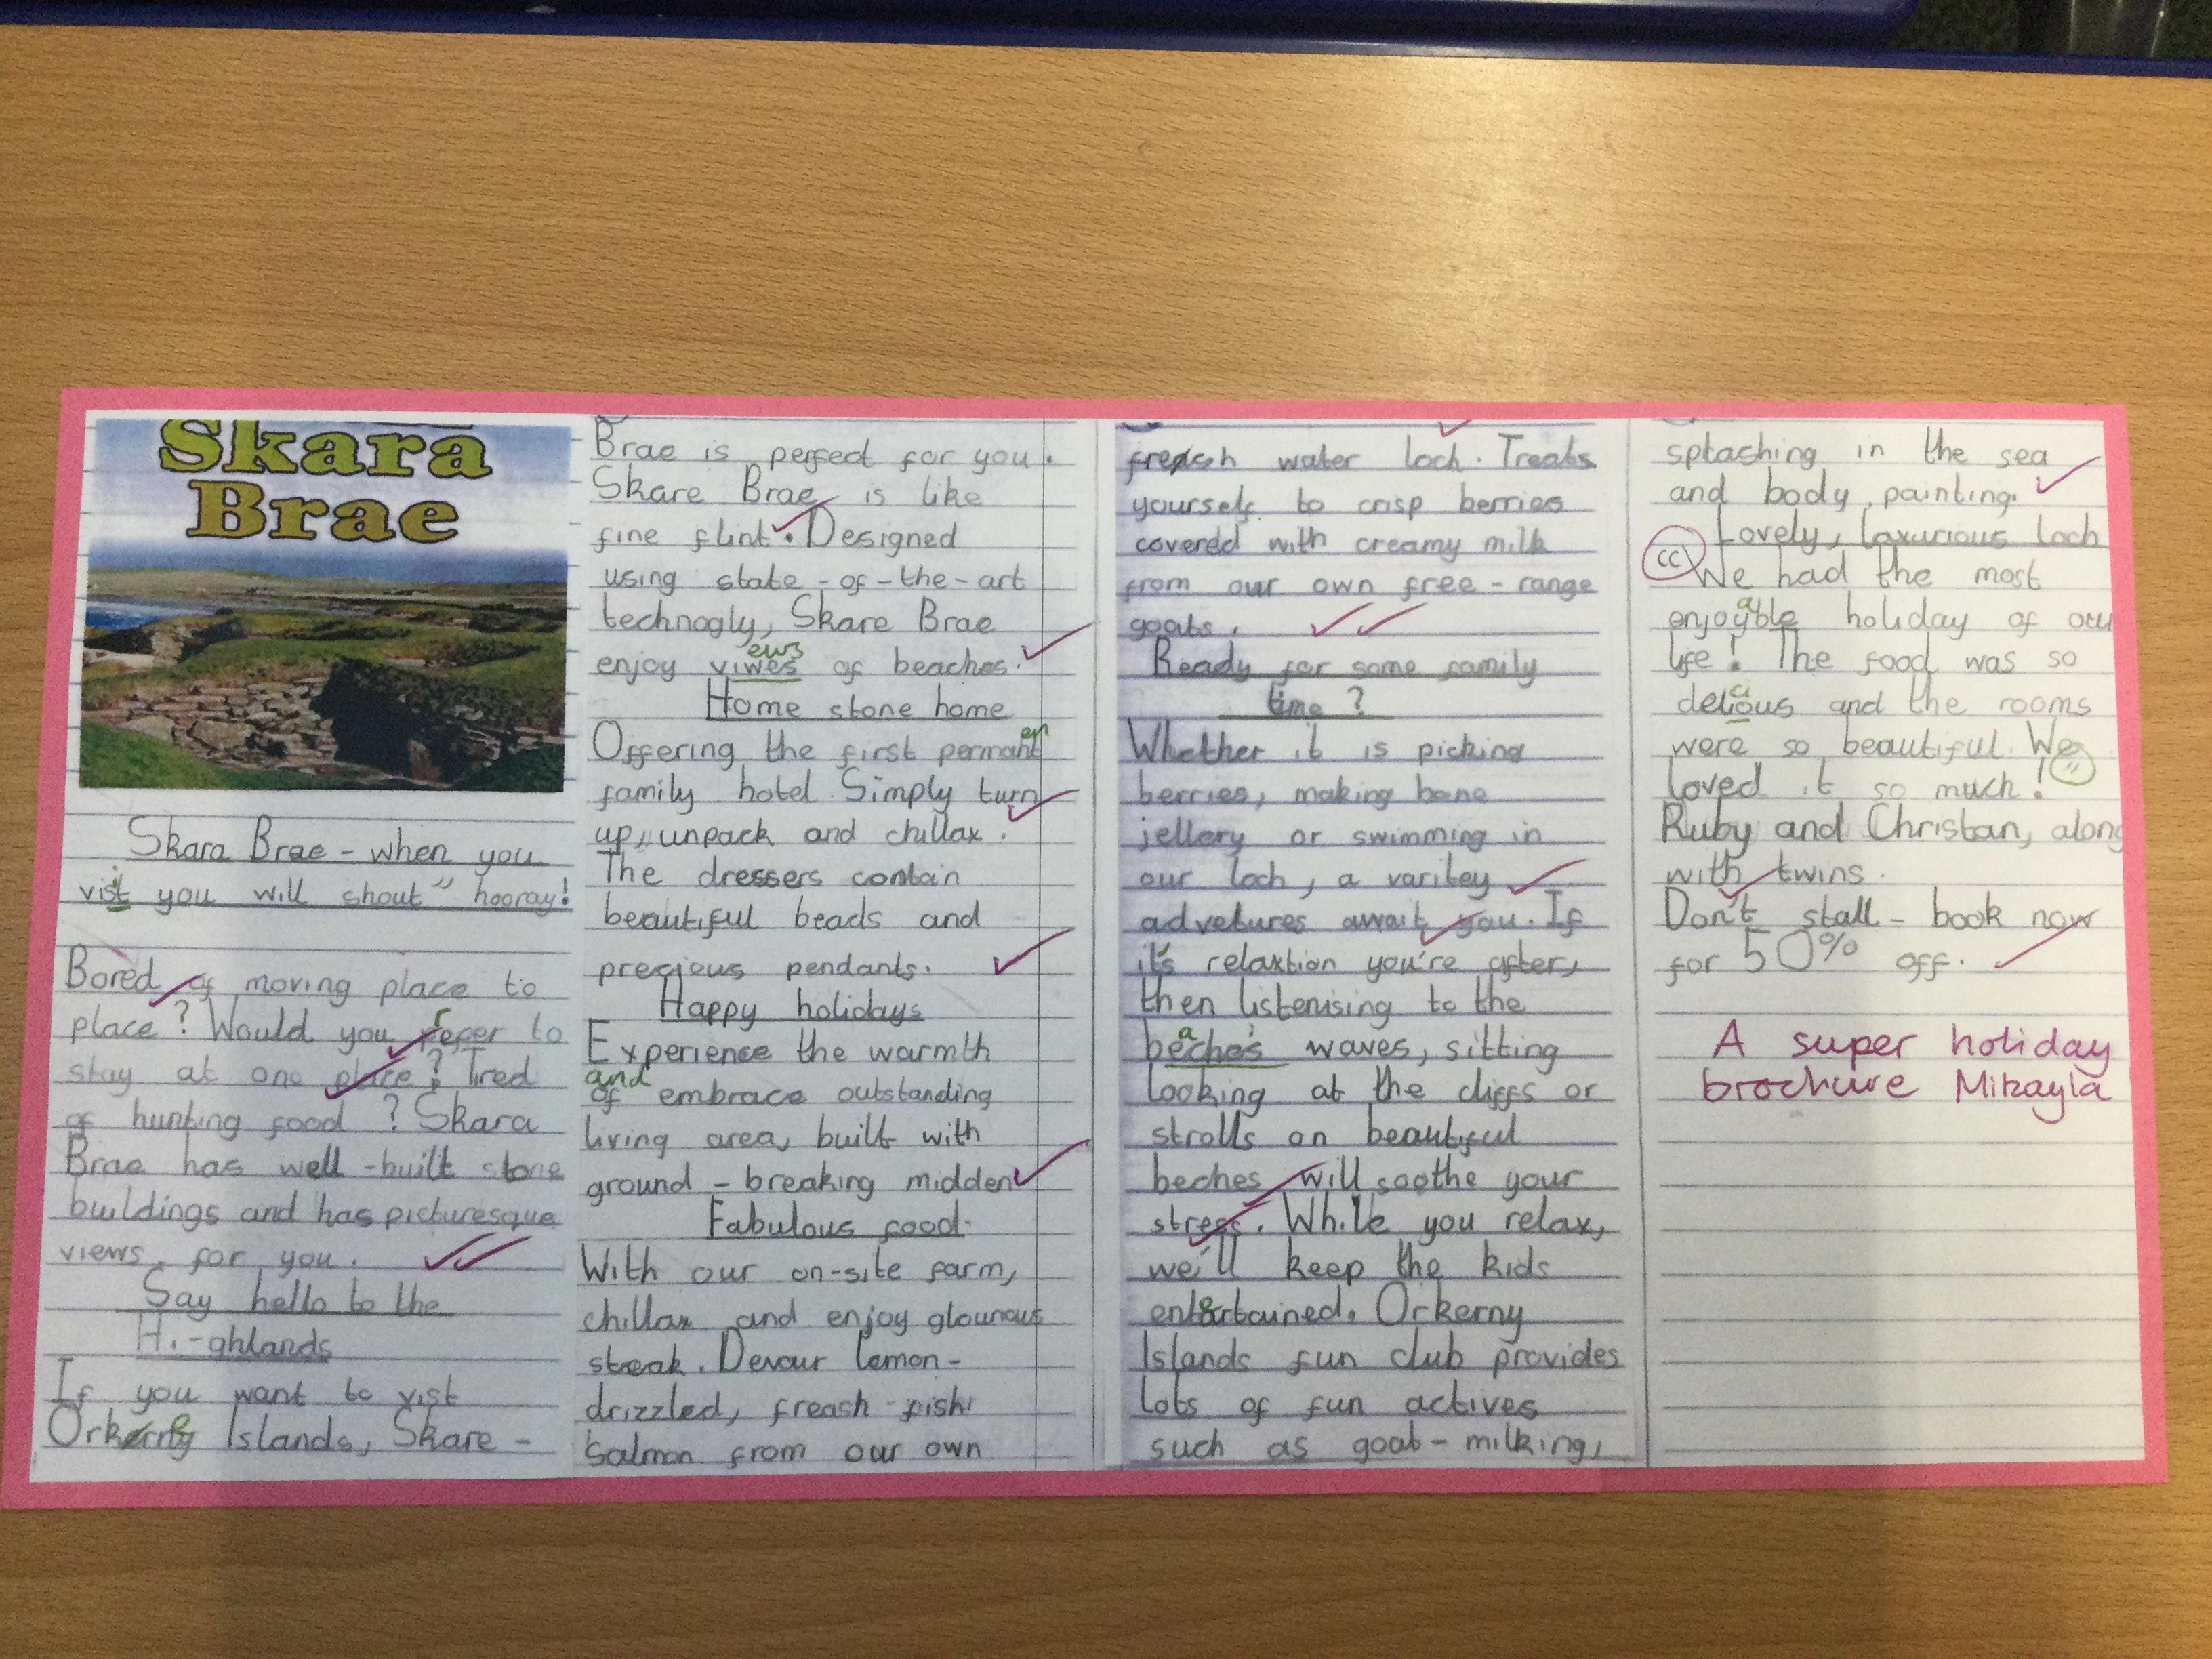 Skara
Brae
Skara Brae - when you
visit you will shout " hooray!
Bored of moving place to
place? Would you refer to
stay at one place? Tired
of hunting food? Skara
Brae has well-built stone
buildings and has picturesque
views, for you.
Say hello to the
Hi-ghlands
If you want to vist
Islands, Skare-
Brae is perfect for you.
Skare Brae is like
fine flint. Designed
using state-of-the-art
technogly, Skare Brae
ews
enjoy viwes of beaches.
Home stone home
en
Offering the first permant
family hotel. Simply turn
up, unpack and chillax.
The dressers contain
beautiful beads and
precious pendants.
Happy holidays
Experience the warmth
and
of embrace outstanding
living area, built with
ground-breaking midden
Fabulous food.
With our on-site farm,
chillax and enjoy glourious
streak. Devour lemon-
drizzled, freash fish
salmon from our own
fresh water loch. Treats
yourself to crisp berries
covered with creamy milk
from our own free-range
goats.
Ready for some family
time?
Whether it is picking
berries, making bone
jellery or swimming in
our loch, a varitey
advetures await you. If
it's relaxtion you're after,
then listenising to the
a
beches waves, sitting
looking at the cliffs or
strolls on beautiful
beches will soothe your
stress. While you relax,
we'll keep the kids
entertained. Orkerny
Islands fun club provides
lots of fun actives
such as goat-milking,
splashing in the sea
and body painting.
Lovely, laxurious loch
CC We had the most
enjoyable holiday of our
life! The food was so
ci
delious and the rooms
were so beautiful. We
loved it so much!
Ruby and Christan, along
with twins.
Don't stall - book now
for 50% off.
A super holiday
brochure Mikayla